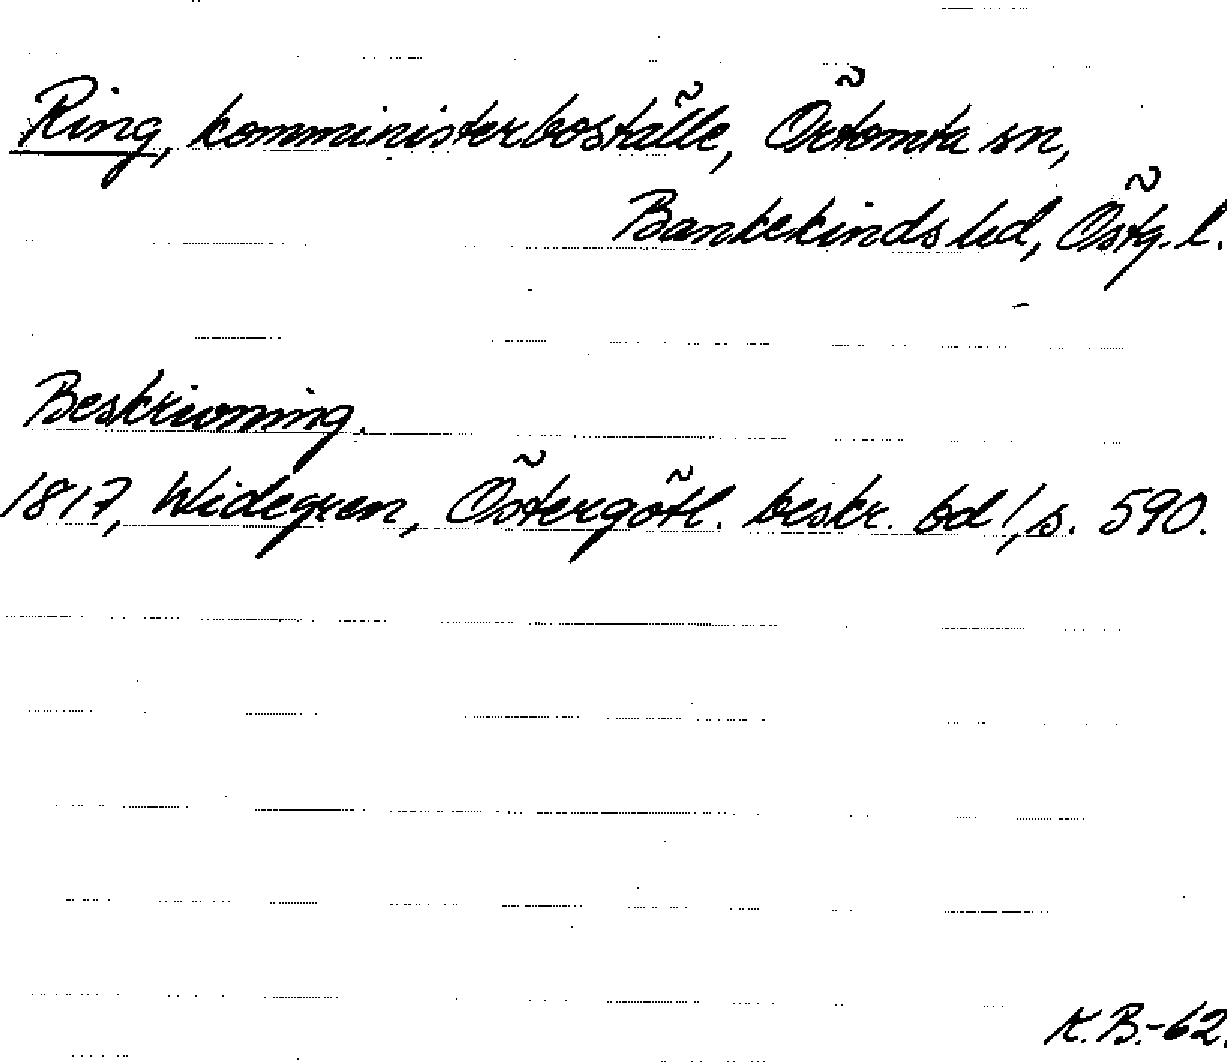 Ring, komministerboställe, Örtomta sn,
Bankekinds hd, Östg. l.
Beskrivning.
1817, Widegren, Östergötl. beskr. bd 1, s. 590.
K.B.-62.